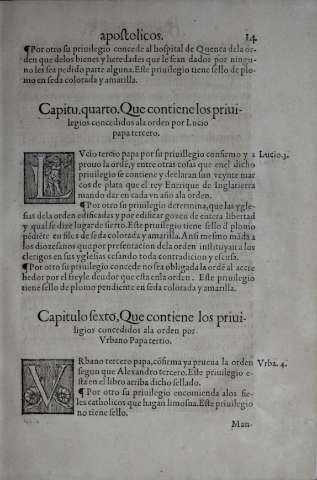 apostolicos. 14.
¶Por otro su priuilegio concede al hospital de Quenca dela or-
den que delos bienes y heredades que le sean dados por ningu-
no les sea pedido parte alguna. Este priuilegio tiene sello de plo-
mo en seda colorada y amarilla.
Capitu, quarto. Que contiene los priui-
legios concedidos ala orden por Lucio
papa tercero.
LVcio tercio papa por su priuillegio confirmo y a Lucio.3.
prouo la orde, y entre otras cosas que enel dicho
priuilegio se contiene y declaran son veynte mar
cos de plata que el rey Enrrique de Inglatierra
mando dar en cada vn año ala orden.
¶Por otro su priuilegio determina, que las ygle-
sias dela orden edificadas y por edificar gozen de entera libertad
y qual se dize lugar desierto. Este priuilegio tiene sello d plomo
pēdiēte en filos de seda colorada y amarilla. Ansi mesmo māda a
los diozesanos que por presentacion dela orden instituyan a los
clerigos en sus yglesias cesando toda contradicion y escusa.
¶Por otro su priuilegio concede no sea obligada la ordē al acree
hedor por el freyle deudor que esta enla orden. Este priuilegio
tiene sello de plomo pendiente en seda colorada y amarilla.
Capitulo sexto, Que contiene los priui-
legios concedidos ala orden por
Vrbano Papa tertio.
VRbano tercero papa, cōfirma ya prueua la orden Vrba. 4.
segun que Alexandro tercero. Este priuilegio e-
sta en el libro arriba dicho sellado.
¶Por otro su priuilegio encomienda alos fie-
les catholicos que hagan limosna. Este priuilegio
no tiene sello.
Man-